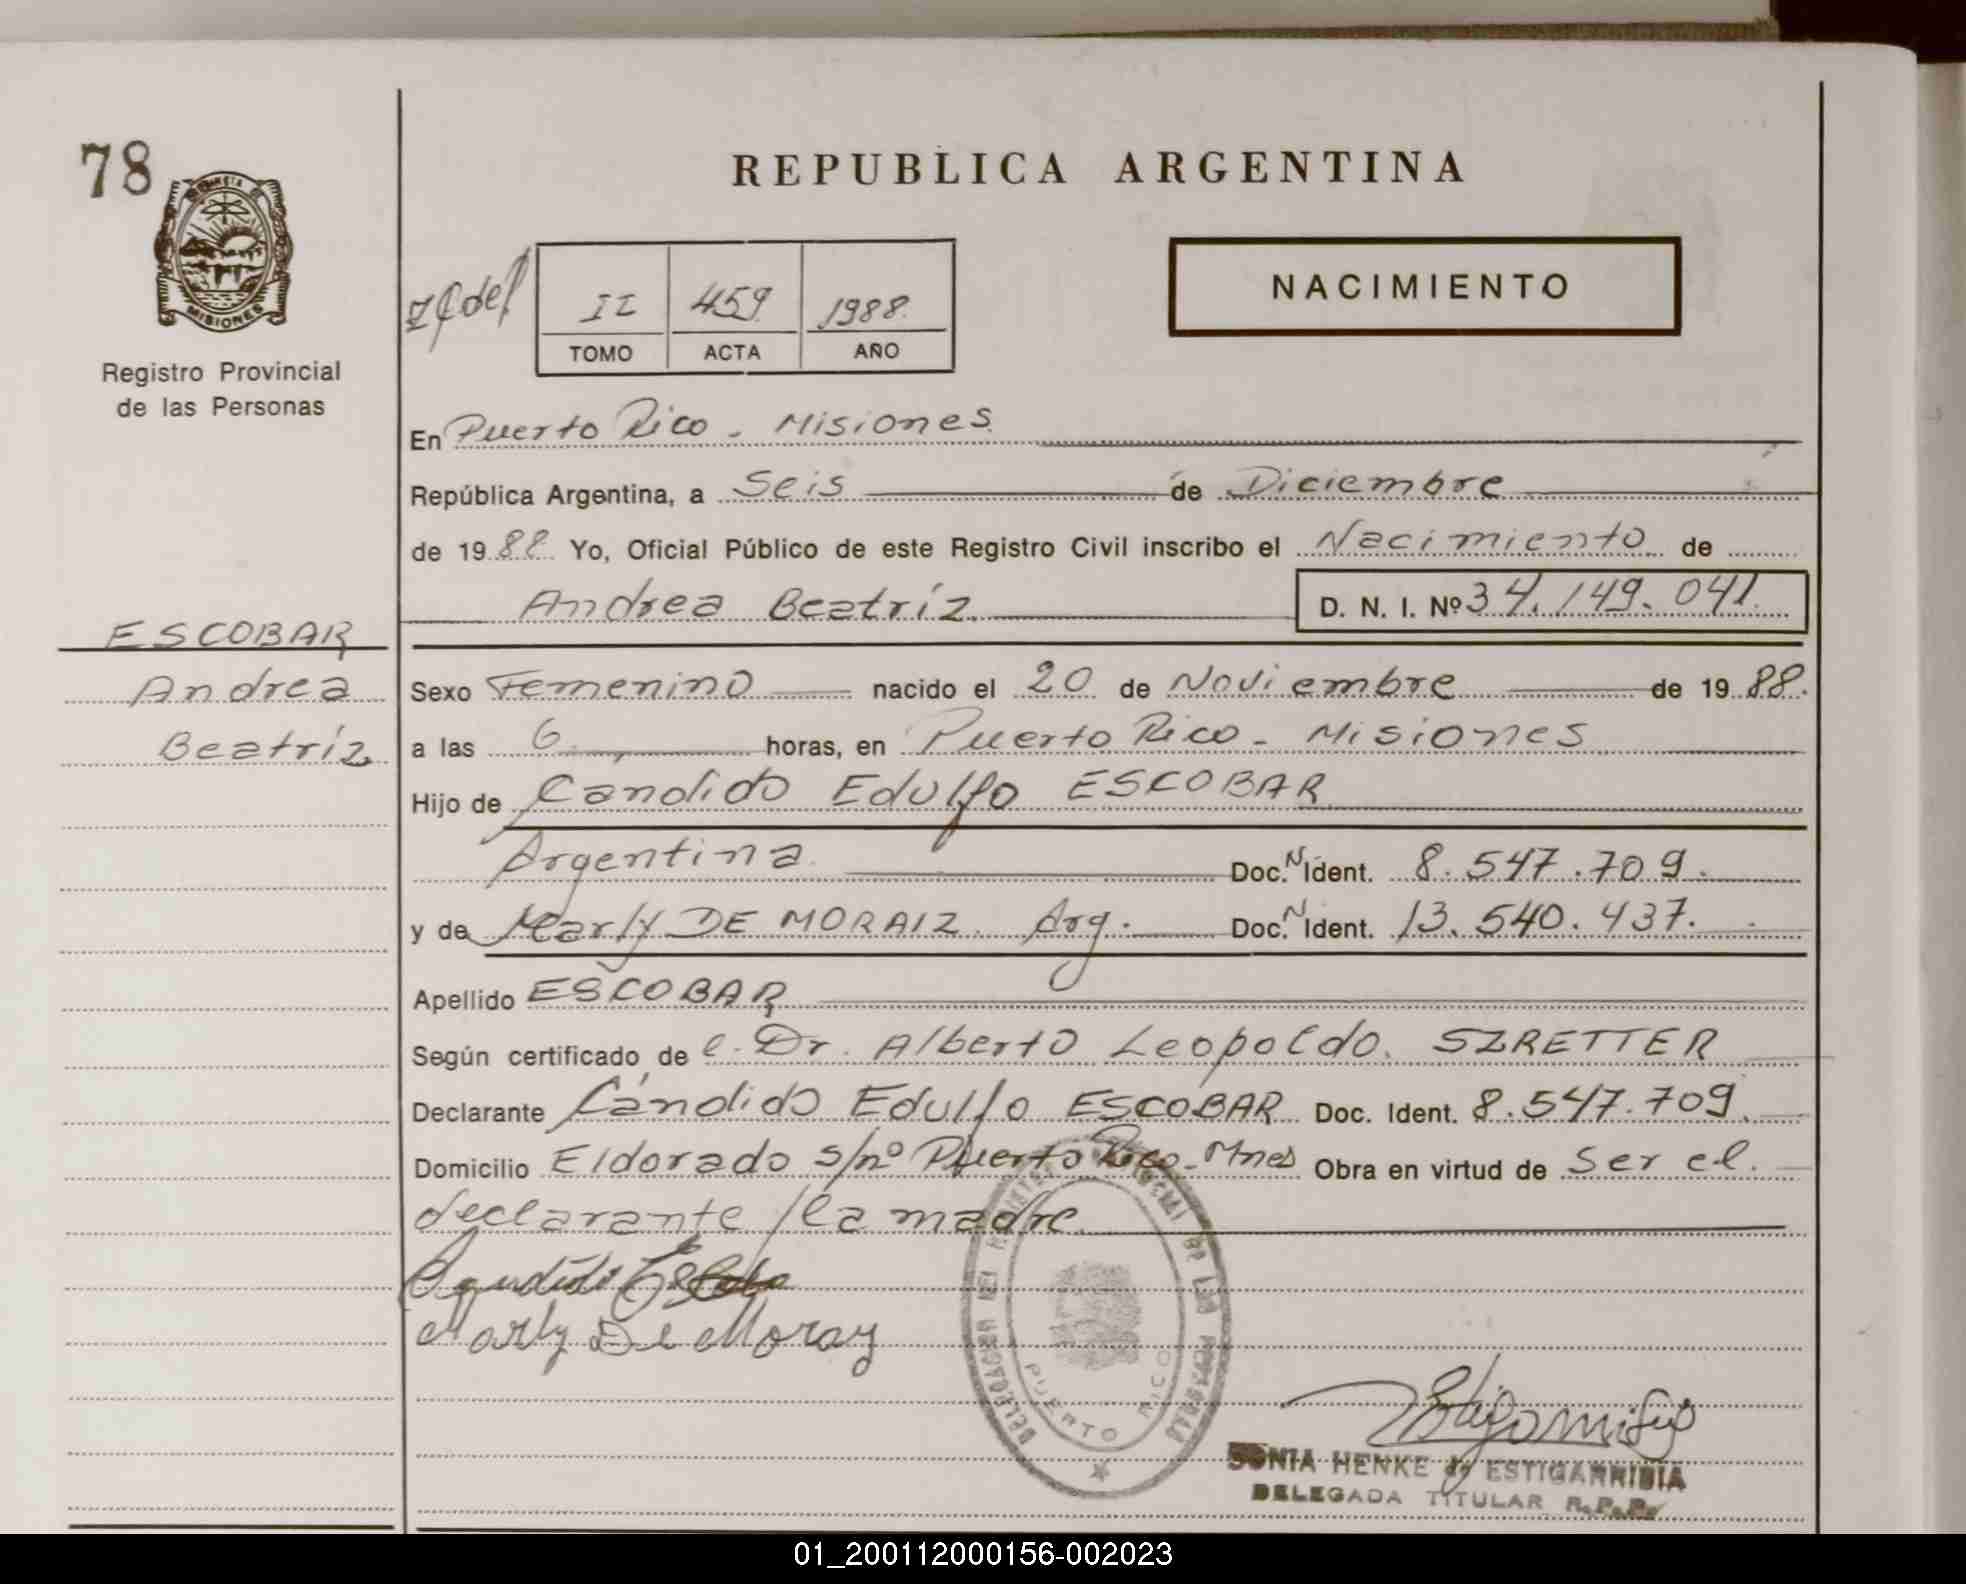 78
MISIONES
Registro Provincial
de las Personas
REPUBLICA ARGENTINA
NACIMIENTO
del
II 459 1988
TOMO ACTA AÑO
En Puerto Rico - Misiones
República Argentina, a Seis de Diciembre
de 1988 Yo, Oficial Público de este Registro Civil inscribo el Nacimiento de
Andrea Beatríz D. N. I. Nº 34.149.041
ESCOBAR
Andrea
Beatríz
Sexo Femenino nacido el 20 de Noviembre de 1988.
a las 6 horas, en Puerto Rico - Misiones
Hijo de Cándido Edulfo ESCOBAR
Argentina Doc. N Ident. 8.547.709.
y de Marly DE MORAIZ Arg. Doc. N Ident. 13.540.437.
Apellido ESCOBAR
Según certificado de l. Dr. Alberto Leopoldo SZRETTER
Declarante Cándido Edulfo ESCOBAR Doc. Ident. 8.547.709.
Domicilio Eldorado s/nº Puerto Rico - Mnes Obra en virtud de Ser el
declarante / la madre
Marly De Moraz
PUERTO RICO
SONIA HENKE de ESTIGARRIBIA
DELEGADA TITULAR R.P.P.
01_200112000156-002023